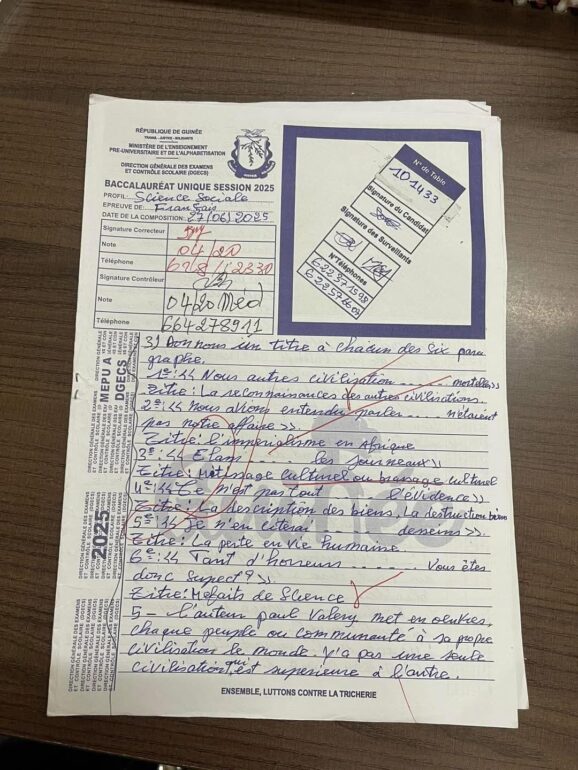 RÉPUBLIQUE DE GUINÉE
TRAVAIL - JUSTICE - SOLIDARITÉ
MINISTÈRE DE L'ENSEIGNEMENT
PRE-UNIVERSITAIRE ET DE L'ALPHABETISATION
DIRECTION GÉNÉRALE DES EXAMENS
ET CONTRÔLE SCOLAIRE (DGECS)
BACCALAURÉAT UNIQUE SESSION 2025
PROFIL: Science Sociale
EPREUVE DE: Français
DATE DE LA COMPOSITION: 27/06/2025
Signature Correcteur
Note 04/20
Téléphone
Signature Contrôleur
Note 04/20 Méd
Téléphone 664278911
N° de Table
101433
Signature du Candidat
Signature des Surveillants
N°Téléphones
MEPU A
DGECS
2025
DIRECTION GÉNÉRALE DES EXAMENS
ET CONTRÔLE SCOLAIRE (DGECS)
3) Donnons un titre à chacun des six para
graphe.
1e: << Nous autres civilisation ........ mortelles>>
Titre: La reconnaissances des autres civilisations.
2e: << Nous avions entendu parler ...... n'étaient
pas notre affaire >>.
Titre: l'imperialisme en Afrique
3e: << les journeaux>>
Titre: Métissage culturel ou brassage culturel
4e: << Ce n'est pas tout l'évidence>>
Titre: La description des biens. La destruction biens
5e: << Je n'en citerai ......... desseins >>.
Titre: La perte en vie humaine.
6e: << Tant d'horreurs .......... Vous êtes
donc supect? >>.
Titre: Méfaits de Science
5 - L'auteur paul Valery met en
chaque peuple ou communauté à sa propre
civilisation le monde. y'a pas une seule
civilisation, qui est superieure à l'autre.
ENSEMBLE, LUTTONS CONTRE LA TRICHERIE